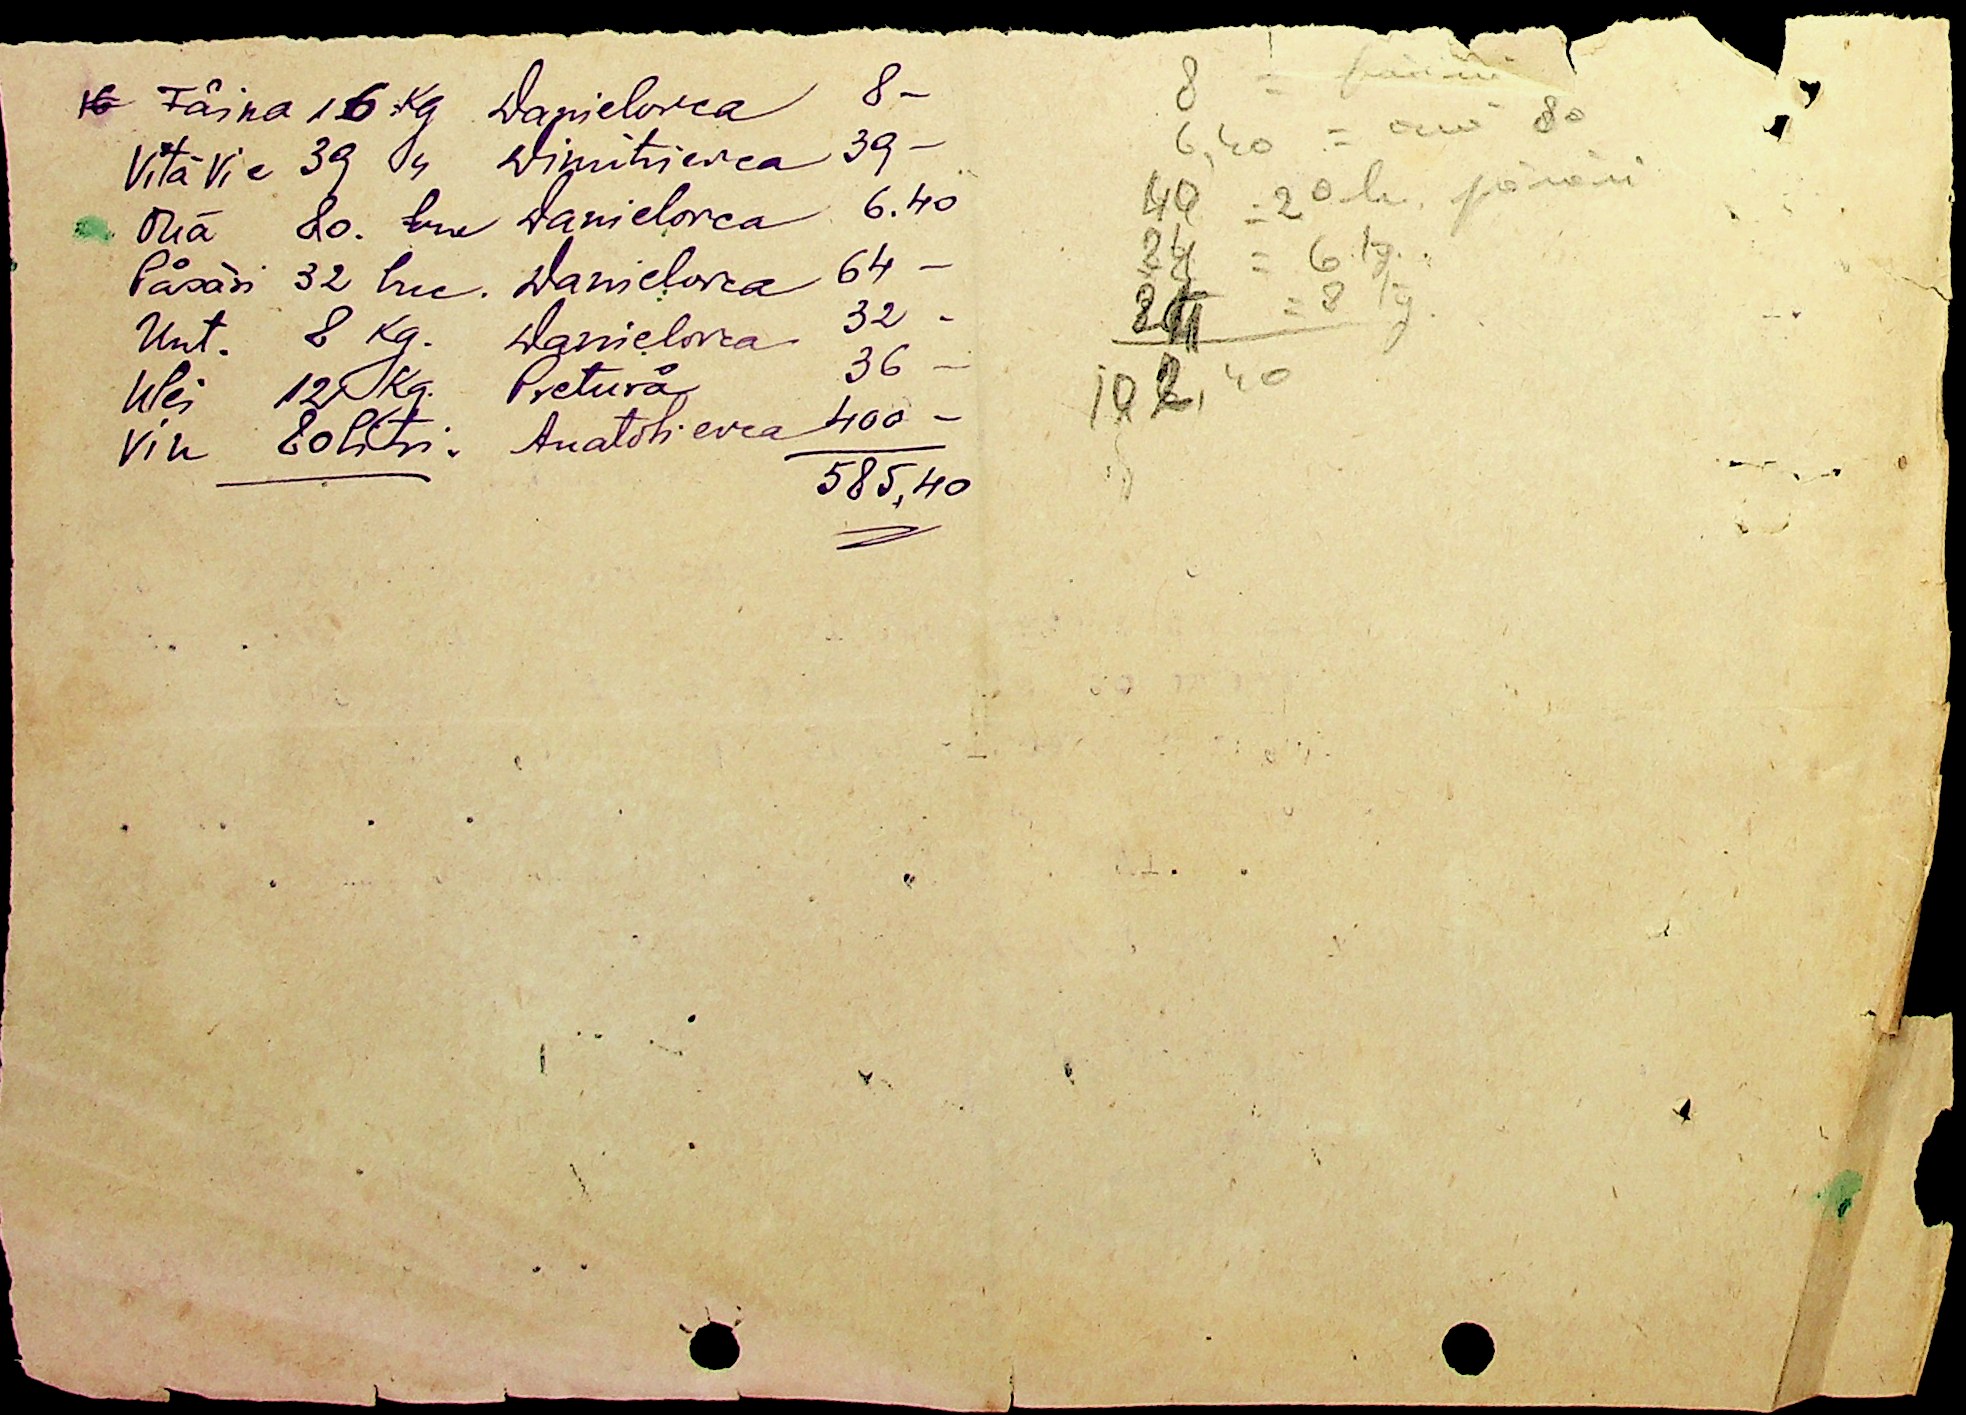 Făina 16 Kg Danielovca 8 –
Vită Vie 39 " Dimitrievca 39 –
Ouă 80. buc Danielovca 6.40
Păsări 32 buc. Danielovca 64 –
Unt. 8 Kg. Danielovca 32 –
Ulei 12 Kg. Pretură 36 –
Vin 80 litri. Anatolievca 400 –
585,40
8 =
6,40 = ouă 80
40 = 20 b. păsări
24 = 6 kg.
= 8 kg.
102,40